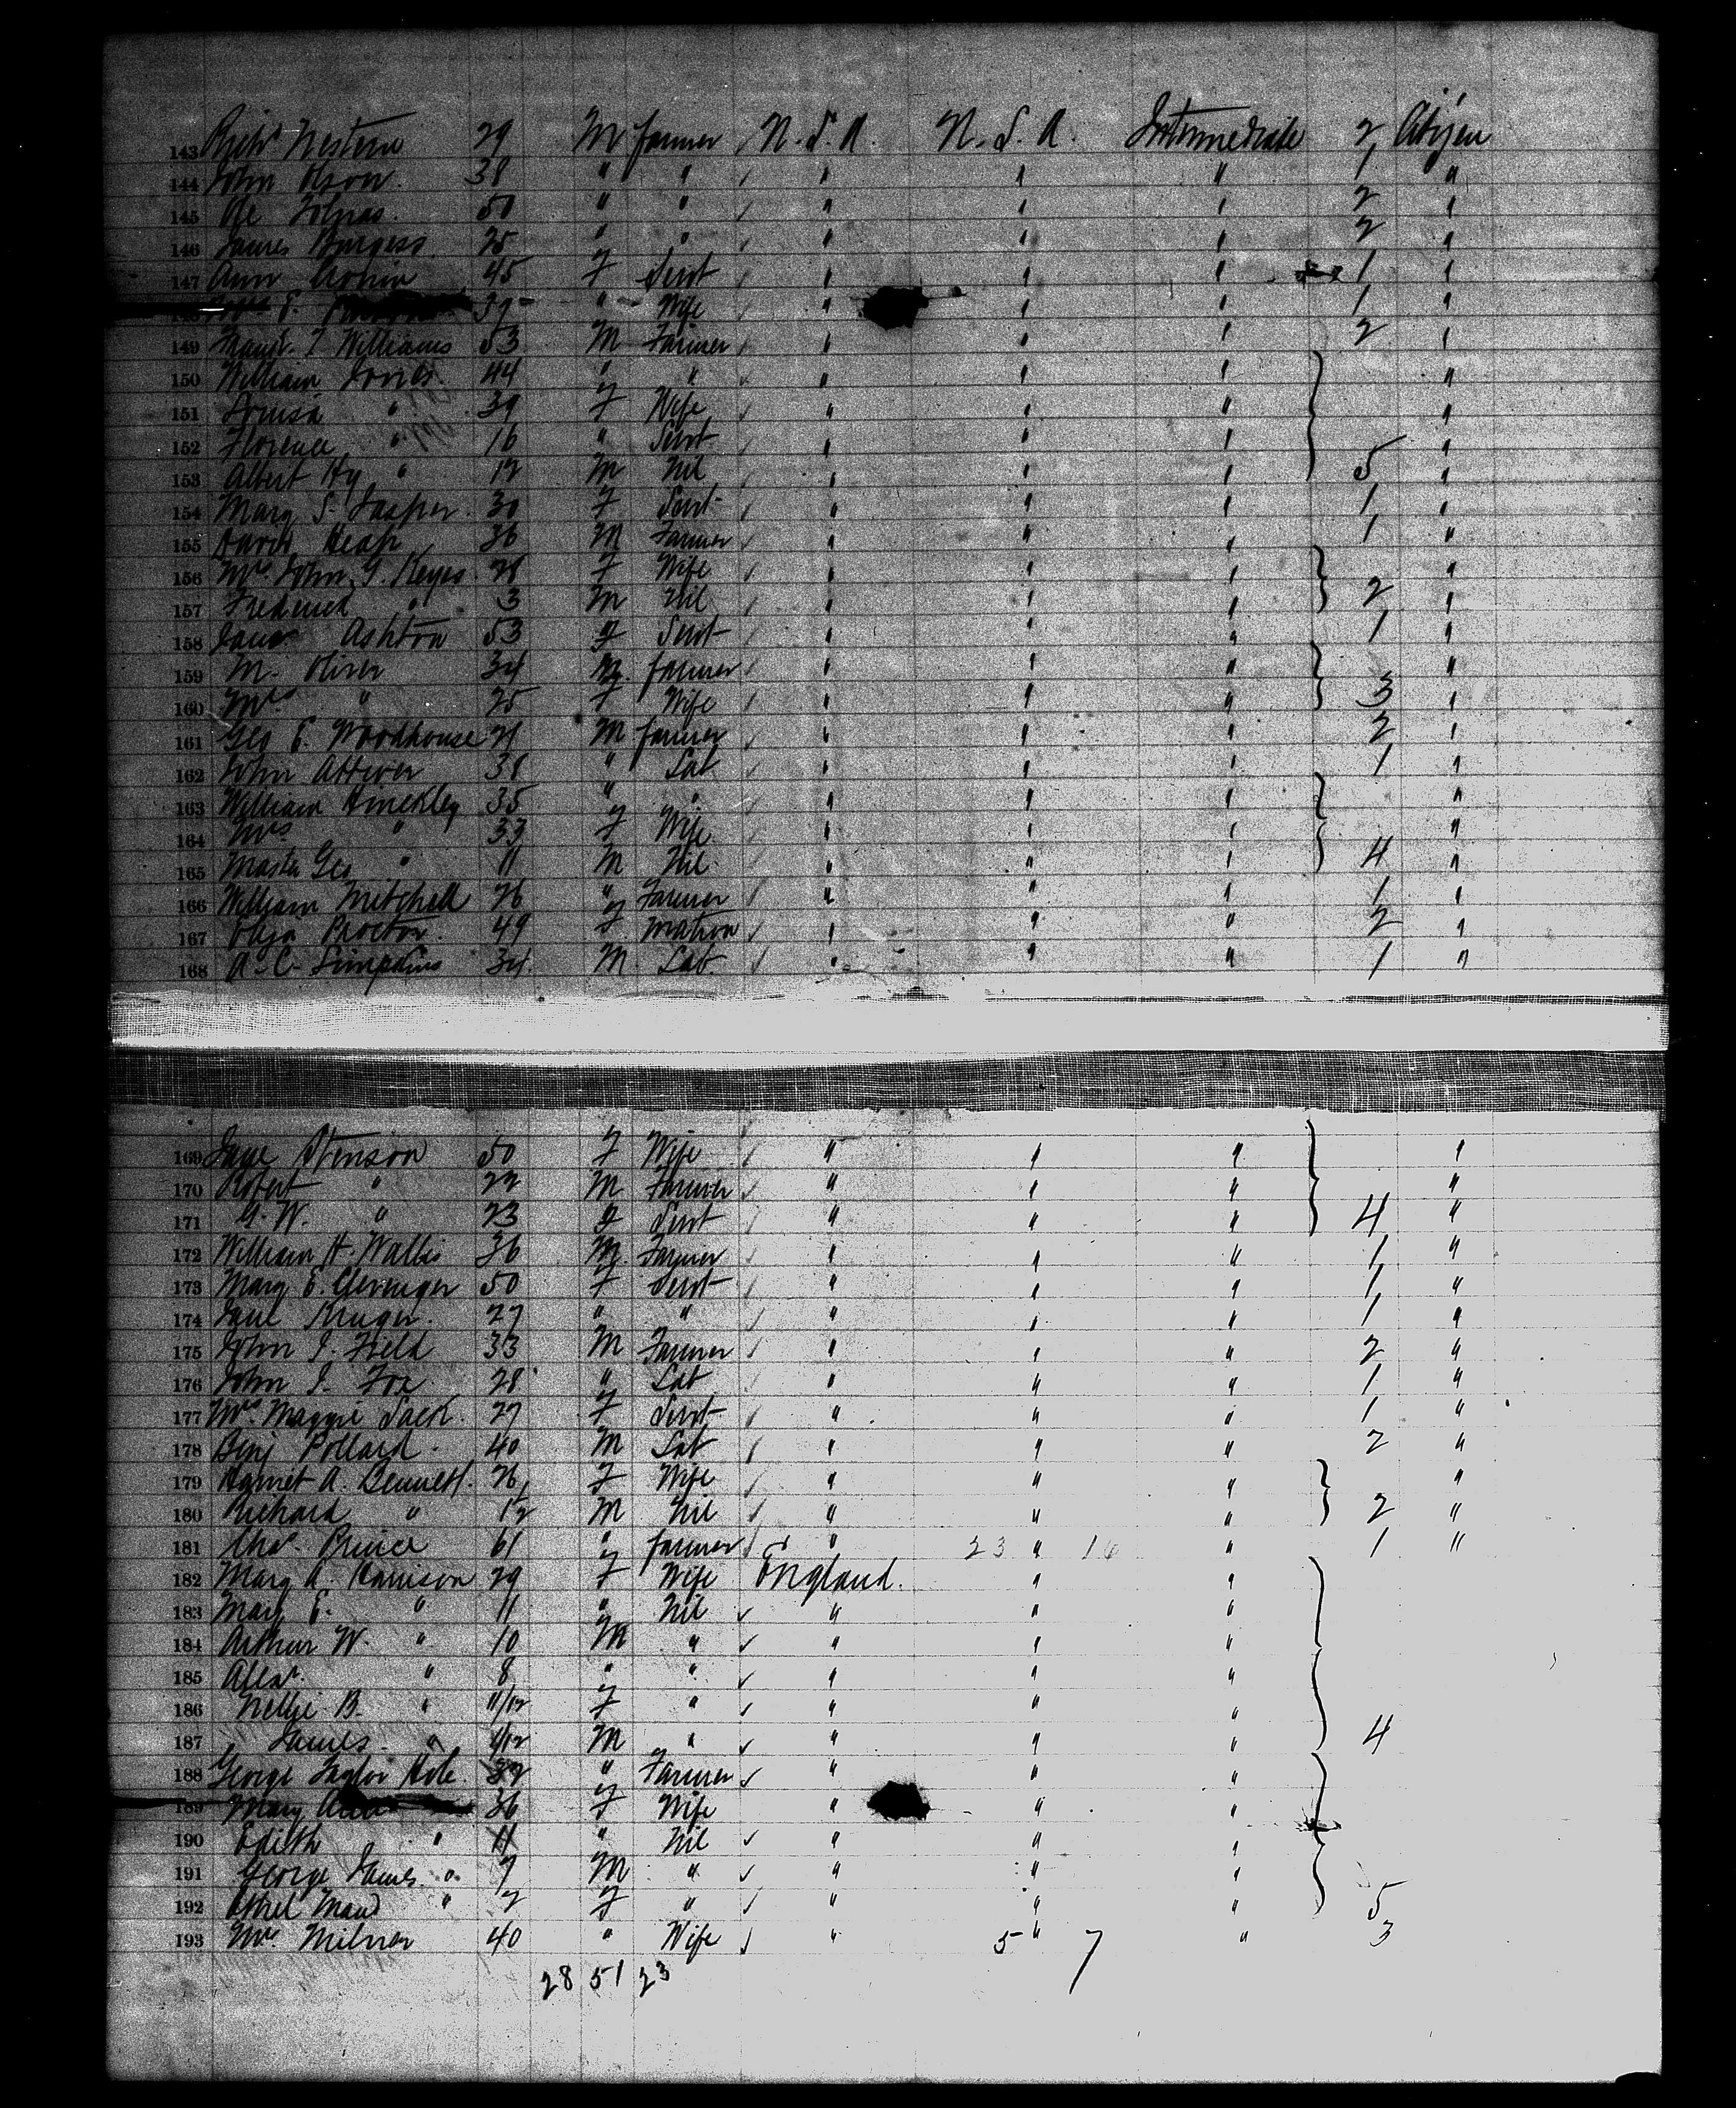 143 Richd Western 29 M farmer U. S. A. U. S. A. Intermediate 2 Citizen
144 John Olson 38 " " " " " 1 "
145 50 " " " " " 2 "
146 James Burgess 25 " " " " " 2 "
147 Ann 45 F Servt " " " 1 "
E. " Wife " " 1 "
149 T Williams 53 M Farmer " " " 2 "
150 William Jones 44 " " " " " "
151 Louisa " 39 F Wife " " " "
152 Florence " 16 " Servt " " " "
153 Albert Hy " 12 M Nil " " " 5 "
154 Mary S. Jasper 30 F Servt " " " 1 "
155 David Heap 36 M Farmer " " " 1 "
156 Mrs John G. Keyes 28 F Wife " " " "
157 Frederick " 3 M Nil " " " 2 "
158 Ashton 53 F Servt " " " 1 "
159 M. Oliver 34 M. farmer " " " "
160 Mrs " 25 F Wife " " " 3 "
161 Geo E. Woodhouse 21 M farmer " " " 2 "
162 John 38 " Lab " " " 1 "
163 William Hinckley 35 " " " " " "
164 Mrs " 33 F Wife " " " "
165 Master Geo " 11 M Nil " " " 4 "
166 William Mitchell 26 " Farmer " " " 1 "
167 Proctor 49 F Matron " " " 2 "
168 A. C. Simpkins 34 M. Lab " " " 1 "
169 Jane Stenson 50 F Wife " " " "
170 Robert " 22 M Farmer " " " "
171 G. W. " 23 F Servt " " " 4 "
172 William H. Wallis 36 M. Farmer " " " 1 "
173 Mary E. Clevenger 50 F Servt " " " 1 "
174 Kruger 27 " " " " " 1 "
175 John J. Field 33 M Farmer " " " 2 "
176 John J. Fox 28 " Lab " " " 1 "
177 Mrs Maggie Sack 27 F Servt " " " 1 "
178 Benj Pollard 40 M Lab " " " 2 "
179 Harriet A. Bennett 26 F Wife " " " "
180 Richard " M Nil " " " 2 "
181 Chas Prince 61 " farmer " 23 " 16 " 1 "
182 Mary A. Harrison 29 F Wife England " "
183 Mary E. " 11 " Nil " " "
184 Arthur W. " 10 M " " " "
185 Alexr " 8 " " " " "
186 Nellie B. " 11/12 F " " " "
187 James " 1/12 M " " " " 4
188 George Taylor Hole 39 " Farmer " " "
189 Mary Ann 36 F Wife " " "
190 Edith " 11 " Nil " " "
191 George James " 7 M " " " "
192 Ethel Maud " 2 F " " " " 5
193 Mrs Milner 40 " Wife " 5 " 7 " 3
28 51 23